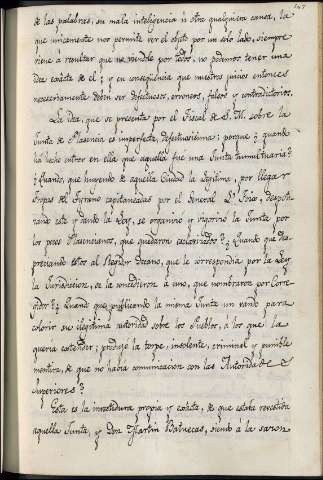 de las palabras, su mala inteligencia ú otra qualquiera causa, la
que unicamente nos permite ver el objeto por un solo lado, siempre
viene á resultar que no podemos tener una
idea exâcta de el; y en conseqüencia que nuestros juicios entonces
necesariamente deben ser defectuosos, erroneos, falsos y contradictorios.
La idea, que se presenta por el Fiscal de S. M. sobre la
Junta de Plasencia es imperfecta, defectuosisima; porque ¿quando
ha hecho entrar en ella que aquella fue una Junta tumultuaria?
¿Quando, que huyendo de aquella Ciudad la legitima, por llegar
tropas del Tyrano capitaneadas por el General
esto y tanto la Ley, se organizó y la Junta por
los pocos Plasencianos, que quedaron ? ¿Quando que des-
preciando estos al Regidor Decano, que le correspondia por la Ley
la Jurisdiccion, se la concedieron á uno, que nombraron por Corre-
gidor? ¿Quando que publicando la misma Junta un vando para
colorir su ilegitima autoridad sobre los Pueblos, á los que la
queria extender; produjo la torpe, insolente, criminal y punible
mentira, de que no habia comunicacion con las Autoridades
Superiores?
Esta es la investidura propia y exâcta, de que estaba revestida
aquella Junta, y Don Martin Batuecas, siendo á la sazon